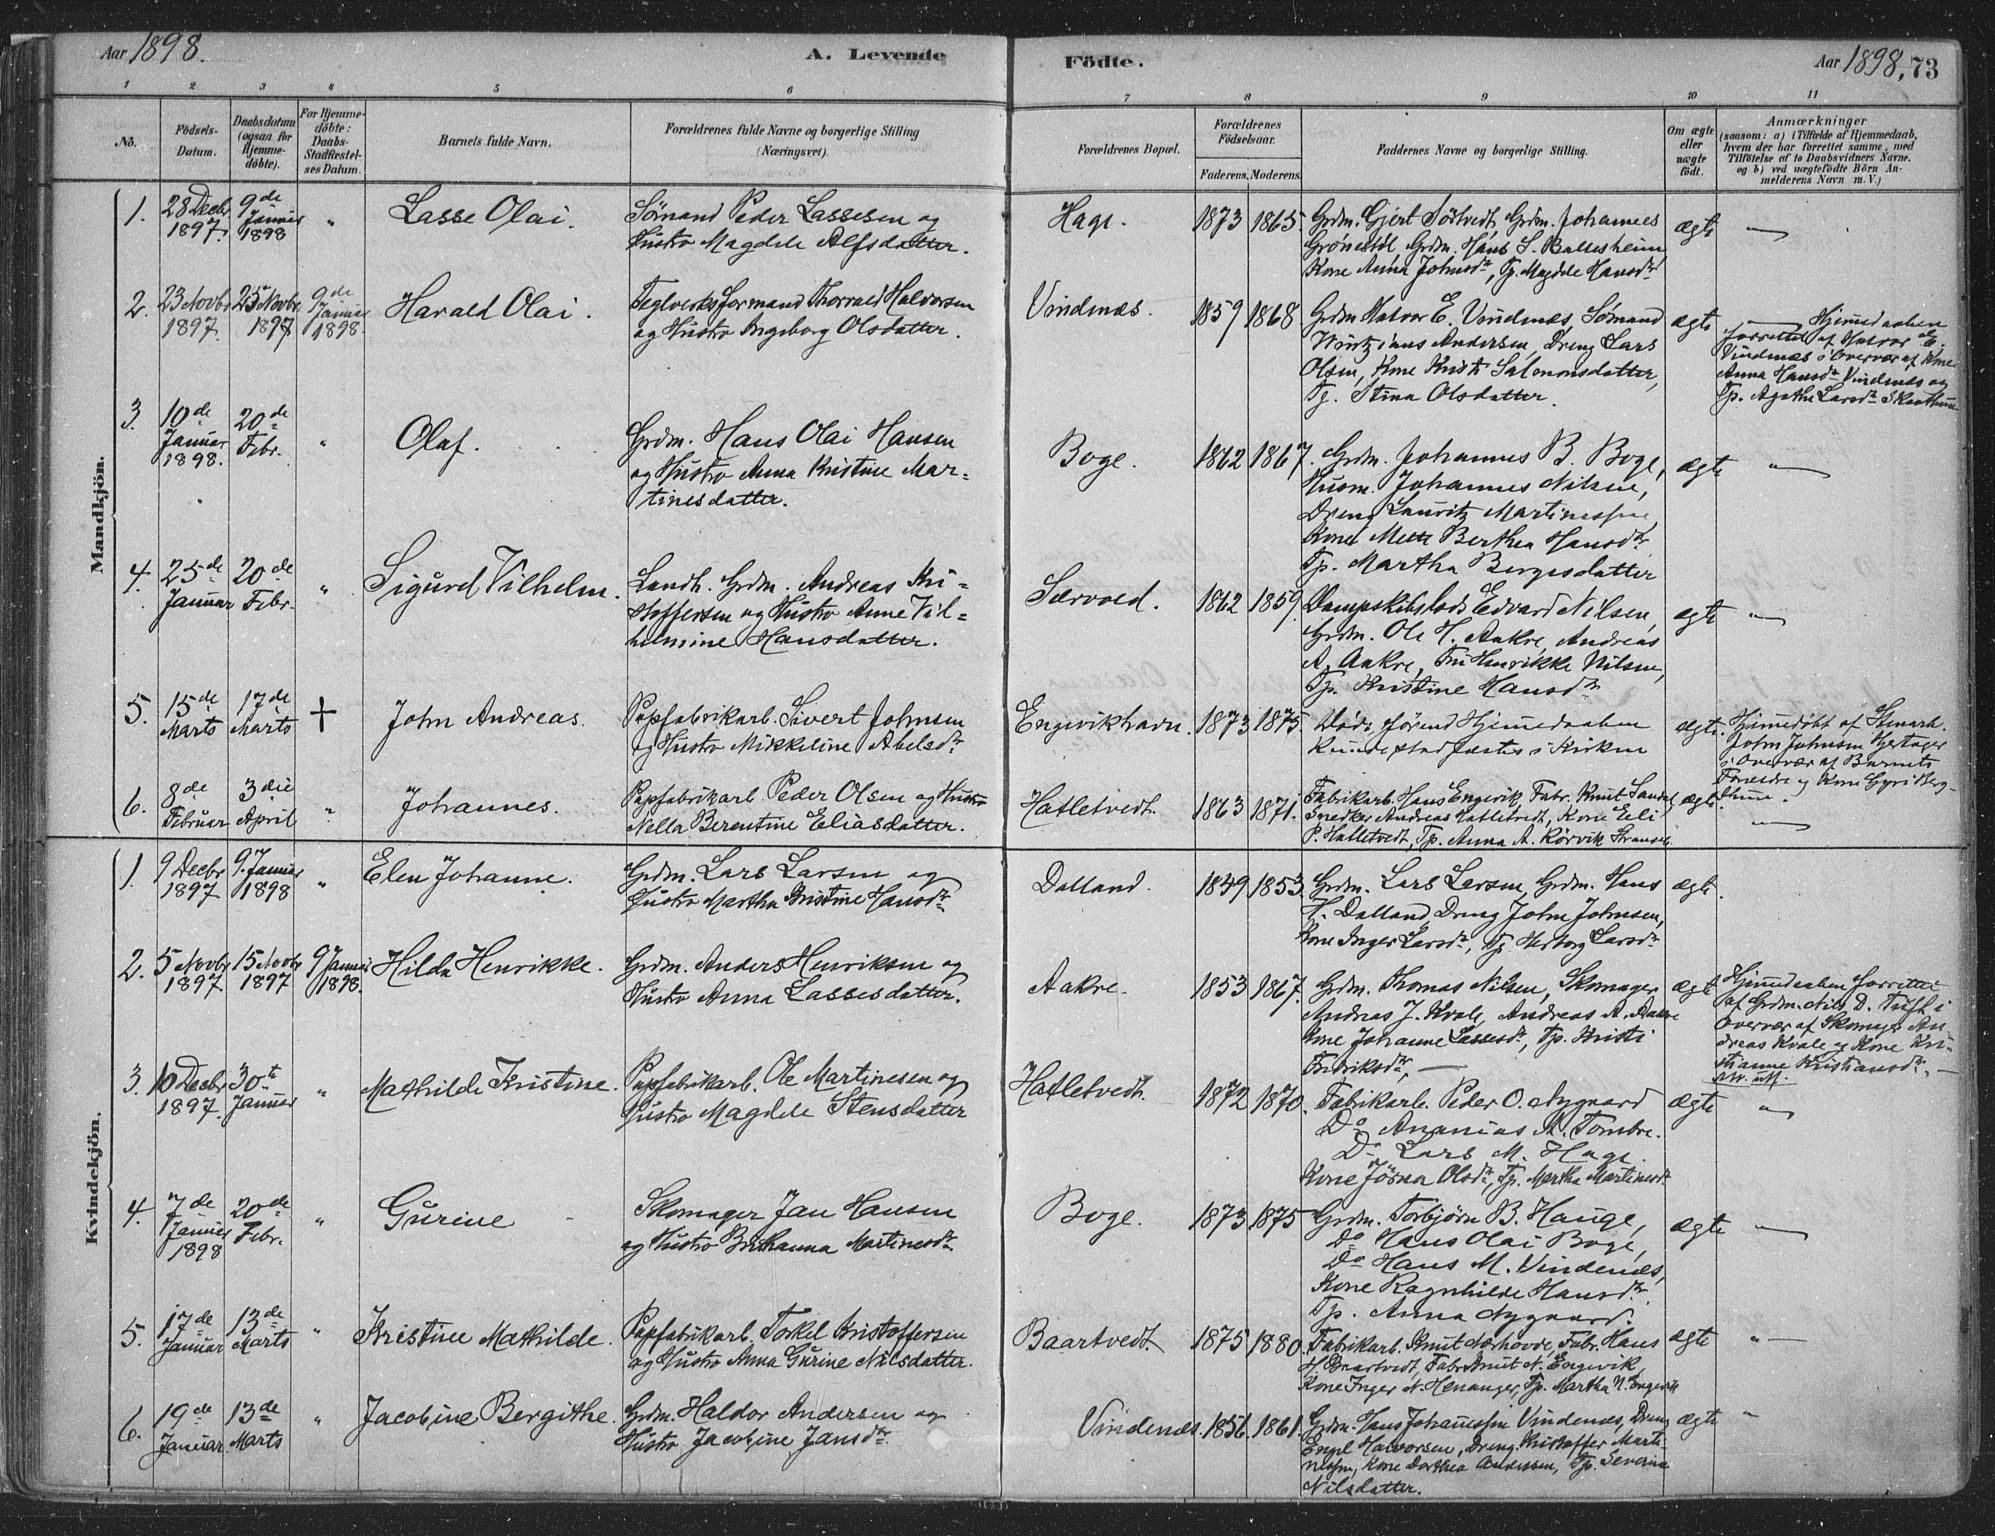 Aar 1898.
A. Levende
Födte.
Aar 1898, 73
1 2 3 4 5 6 7 8 9 10 11
No.
Födsels-Datum.
Daabsdatum (ogsaa for Hjemmedöbte).
For Hjemmedöbte: Daabs-Stadfæstelses Datum.
Barnets fulde Navn.
Forældrenes fulde Navne og borgerlige Stilling (Næringsvei).
Forældrenes Bopæl.
Forældrenes Födselsaar.
Faderens. Moderens.
Faddernes Navne og borgerlige Stilling.
Om ægte eller uægte födt.
Anmærkninger
(saasom: a) i Tilfælde af Hjemmedaab, hvem der har forrettet samme, med Tilföielse af to Daabsvidners Navne, og b) ved uægtefödte Börn Anmelderens Navn m. V.)
Mandkjön.
1. 28 Decbr 1897. 9de Januar 1898 " Lasse Olai. Sømand Peder Lassesen og
Hustro Magdele Alfsdatter.
Hage. 1873 1865. Grdm. Gjert Sörtvedt, Grdm. Johannes
Grönesdl, Grdm. Hans S. Ballesheim
Kone Anna Johnsdr, Tp. Magdele Hansdr
ægte "
2. 23 Novbr 1897. 25 Novbr 1897 9de Januar 1898. Harald Olai. Teglverksformand Thorvald Halvorsen
og Hustro Ingeborg Olsdatter.
Vindenæs. 1859 1868. Grdm Halvor E. Vindenæs, Sømand
Andersen, Dreng Lars
Olsen, Kone Kristi Salomonsdatter,
Tp. Stina Olsdatter.
ægte Hjemedaaben
forrettet af Halvor E.
Vindenæs i Overvær af Kone
Anna Hansdr Vindenæs og
Tp. Agathe Larsdr
3. 10de Januar 1898. 20de Febr. " Olaf. Grdm. Hans Olai Hansen
og Hustro Anna Kristine Mar-
tinesdatter.
Boge. 1862 1867. Grdm. Johannes B. Boge,
Husm. Johannes Nilsen,
Dreng Lauritz Martinessen
Kone Mette Berthea Hansdr
Tp. Martha Bergesdatter
ægte "
4. 25de Januar 20de Febr. " Sigurd Vilhelm. Landh. Grdm. Andreas Kri-
stoffersen og Hustro Anne Vil-
helmine Hansdatter.
Særvold. 1862 1859. Dampskibslods Edvard Nilsen,
Grdm. Ole H. Aakre, Andreas
A. Aakre, Fru Henrikke Nilsen,
Tp. Kristine Hansdr
ægte "
5. 15de Marts 17de Marts † John Andreas. Papfabrikarb. Sivert Johnsen
og Hustro Mikkeline Abelsdr
Engevikhavn. 1873 1875. Döde förend Hjemedaaben
kunde stadfæstes i Kirken
ægte. Hjemedöbt af Stenarb.
John Johnsen Hjertager
i Overvær af Barnets
Forældre og Kone Gyri Berg-
thun.
6. 8de Februar 3die April " Johannes. Papfabrikarb. Peder Olsen og Hustro
Nella Berentine Eliasdatter.
Hatletvedt. 1863 1871. Fabrikarb. Hans Engevik, Fabr. Knut Sandal
Snedker Andreas Hatletvedt, Kone Eeli
P. Hatletvedt, Tp. Anna A. Rörvik
ægte
Kvindekjön.
1. 9 Decbr 1897. 9. Januar 1898 " Elen Johanne. Grdm. Lars Larsen og
Hustro Martha Kristine Hansdr
Dalland. 1849 1853. Grdm. Lars Larsen, Grdm. Hans
H. Dalland, Dreng John Johnsen,
Kone Inger Larsdr, Tp. Herborg Larsdr
ægte.
2. 5 Novbr 1897. 15 Novbr 1897 9 Januar 1898. Hilda Henrikke. Grdm. Anders Henriksen og
Hustro Anna Lassesdatter.
Aakre. 1853 1867. Grdm. Thomas Nilsen, Skomager
Andreas J. Kvale, Andreas A. Aakre
Kone Johanne Lassesdr, Tp. Kristi
Fredriksdr.
ægte Hjemedaaben forrettet
af Grdm. Nils D. Tuft i
Overvær af Skomager An-
dreas Kvale og Kone Kri-
stianne Kristiansdr.
3. 10 Decbr 1897. 30te Januar " Mathilde Kristine. Papfabrikarb. Ole Martinesen og
Hustro Magdele Stensdatter
Hatletvedt. 1872 1870. Fabrikarb. Peder O. Nygaard
Do Ananias A. Tombre.
Do Lars M. Hage.
Kone Jösna Olsdr, Tp. Martha Martinesdr
ægte "
4. 7de Januar 1898 20de Febr. " Gurine Skomager Jan Hansen
og Hustro Brithanna Martinesdr
Boge. 1873 1875 Grdm. Torbjörn B. Hauge,
Do Hans Olai Boge,
Do Hans M. Vindenæs,
Kone Ragnhilde Hansdr.
Tp. Anna Nygaard.
ægte "
5. 17de Januar 13de Marts " Kristine Mathilde. Papfabrikarb. Torkel Kristoffersen
og Hustro Anna Gurine Nilsdatter.
Baartvedt 1875 1880. Fabrikarb. Knut Nærhovde, Fabr. Hans
H. Baartvedt, Fabr Knut N. Engevik,
Kone Inger N. Henanger, Tp. Martha N. Engevik
ægte "
6. 19de Januar. 13de Marts " Jacobine Bergithe. Grdm. Haldor Andersen og
Hustro Jacobine Jansdr.
Vindenæs. 1856 1861. Grdm. Hans Johannessen Vindenæs, Dreng
Engel Halvorsen, Dreng Kristoffer Marti-
nessen, Kone Dorthea Andersen, Tp. Severine
Nilsdatter.
ægte "